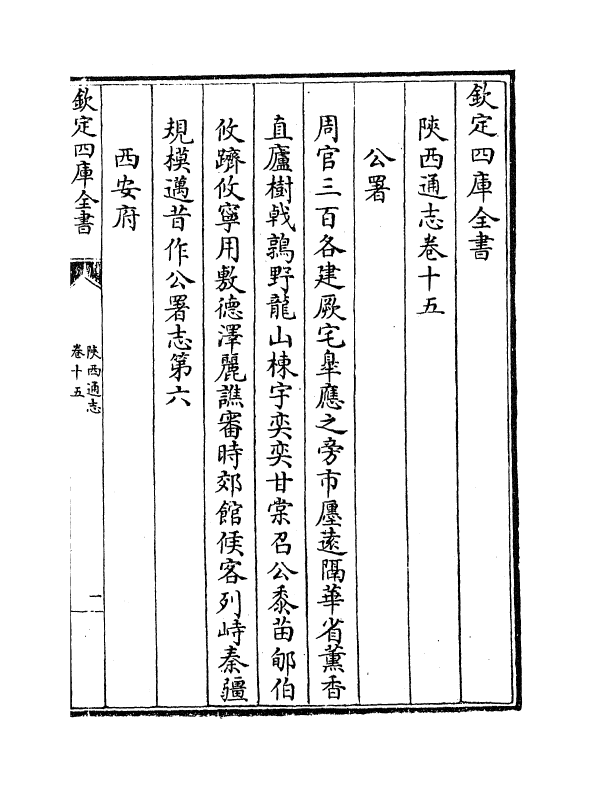 欽定四庫全書
陝西通志卷十五
公署
周官三百各建厥宅臯應之旁市廛逺隔華省薰香
直廬樹㦸鶉野龍山棟宇奕奕甘棠召公黍苗郇伯
攸躋攸寧用敷德澤麗譙審時郊館候客列峙秦疆
規模邁昔作公署志第六
西安府
欽定四庫全書
陝西通志
卷十五
一